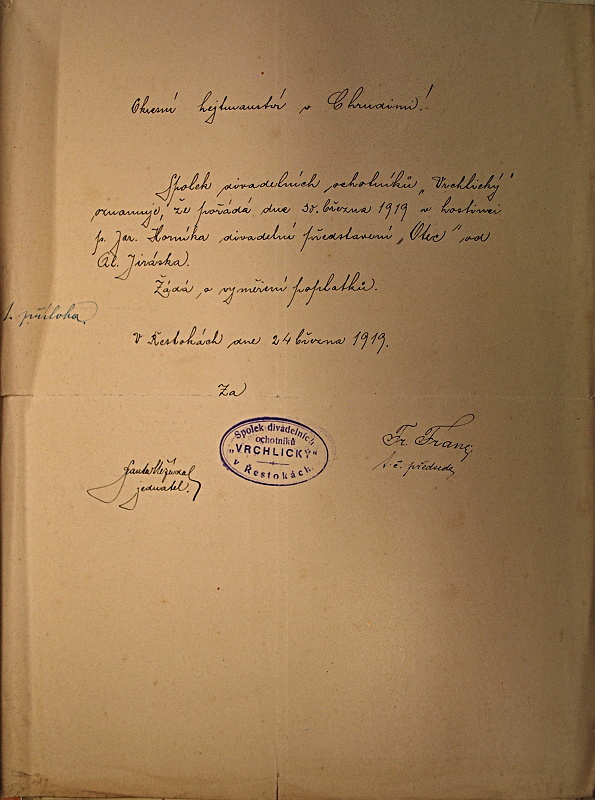 Okresní hejtmanství v Chrudimi!
Spolek divadelních ochotníků „Vrchlický"
oznamuje, že pořádá dne 30. března 1919 v hostinci
p. Jar. Horníka divadelní představení „Otec" od
Al. Jiráska.
Žádá o vyměření poplatků.
1. příloha.
V Řestokách dne 24 března 1919.
Za
Spolek divadelních
ochotníků
„VRCHLICKÝ"
v Řestokách.
Fr. Franc
t. č. předseda
jednatel.